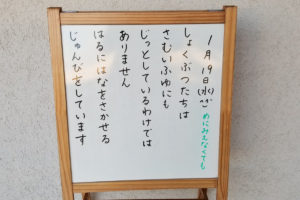 1月19日(水) めにみえなくても
しょくぶつたちは
さむいふゆにも
じっとしているわけでは
ありません
はるにはなをさかせる
じゅんびをしています